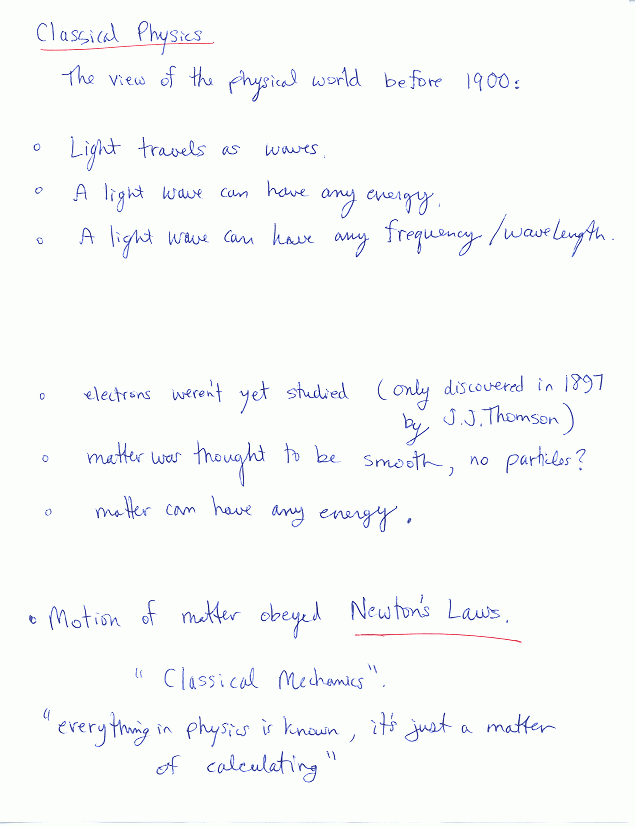 Classical Physics
The view of the physical world before 1900:
◦ Light travels as waves.
◦ A light wave can have any energy.
◦ A light wave can have any frequency/wavelength.
◦ electrons weren't yet studied (only discovered in 1897
by J.J. Thomson)
◦ matter was thought to be smooth, no particles?
◦ matter can have any energy.
• Motion of matter obeyed Newton's Laws.
"Classical Mechanics".
"everything in physics is known, it's just a matter
of calculating"